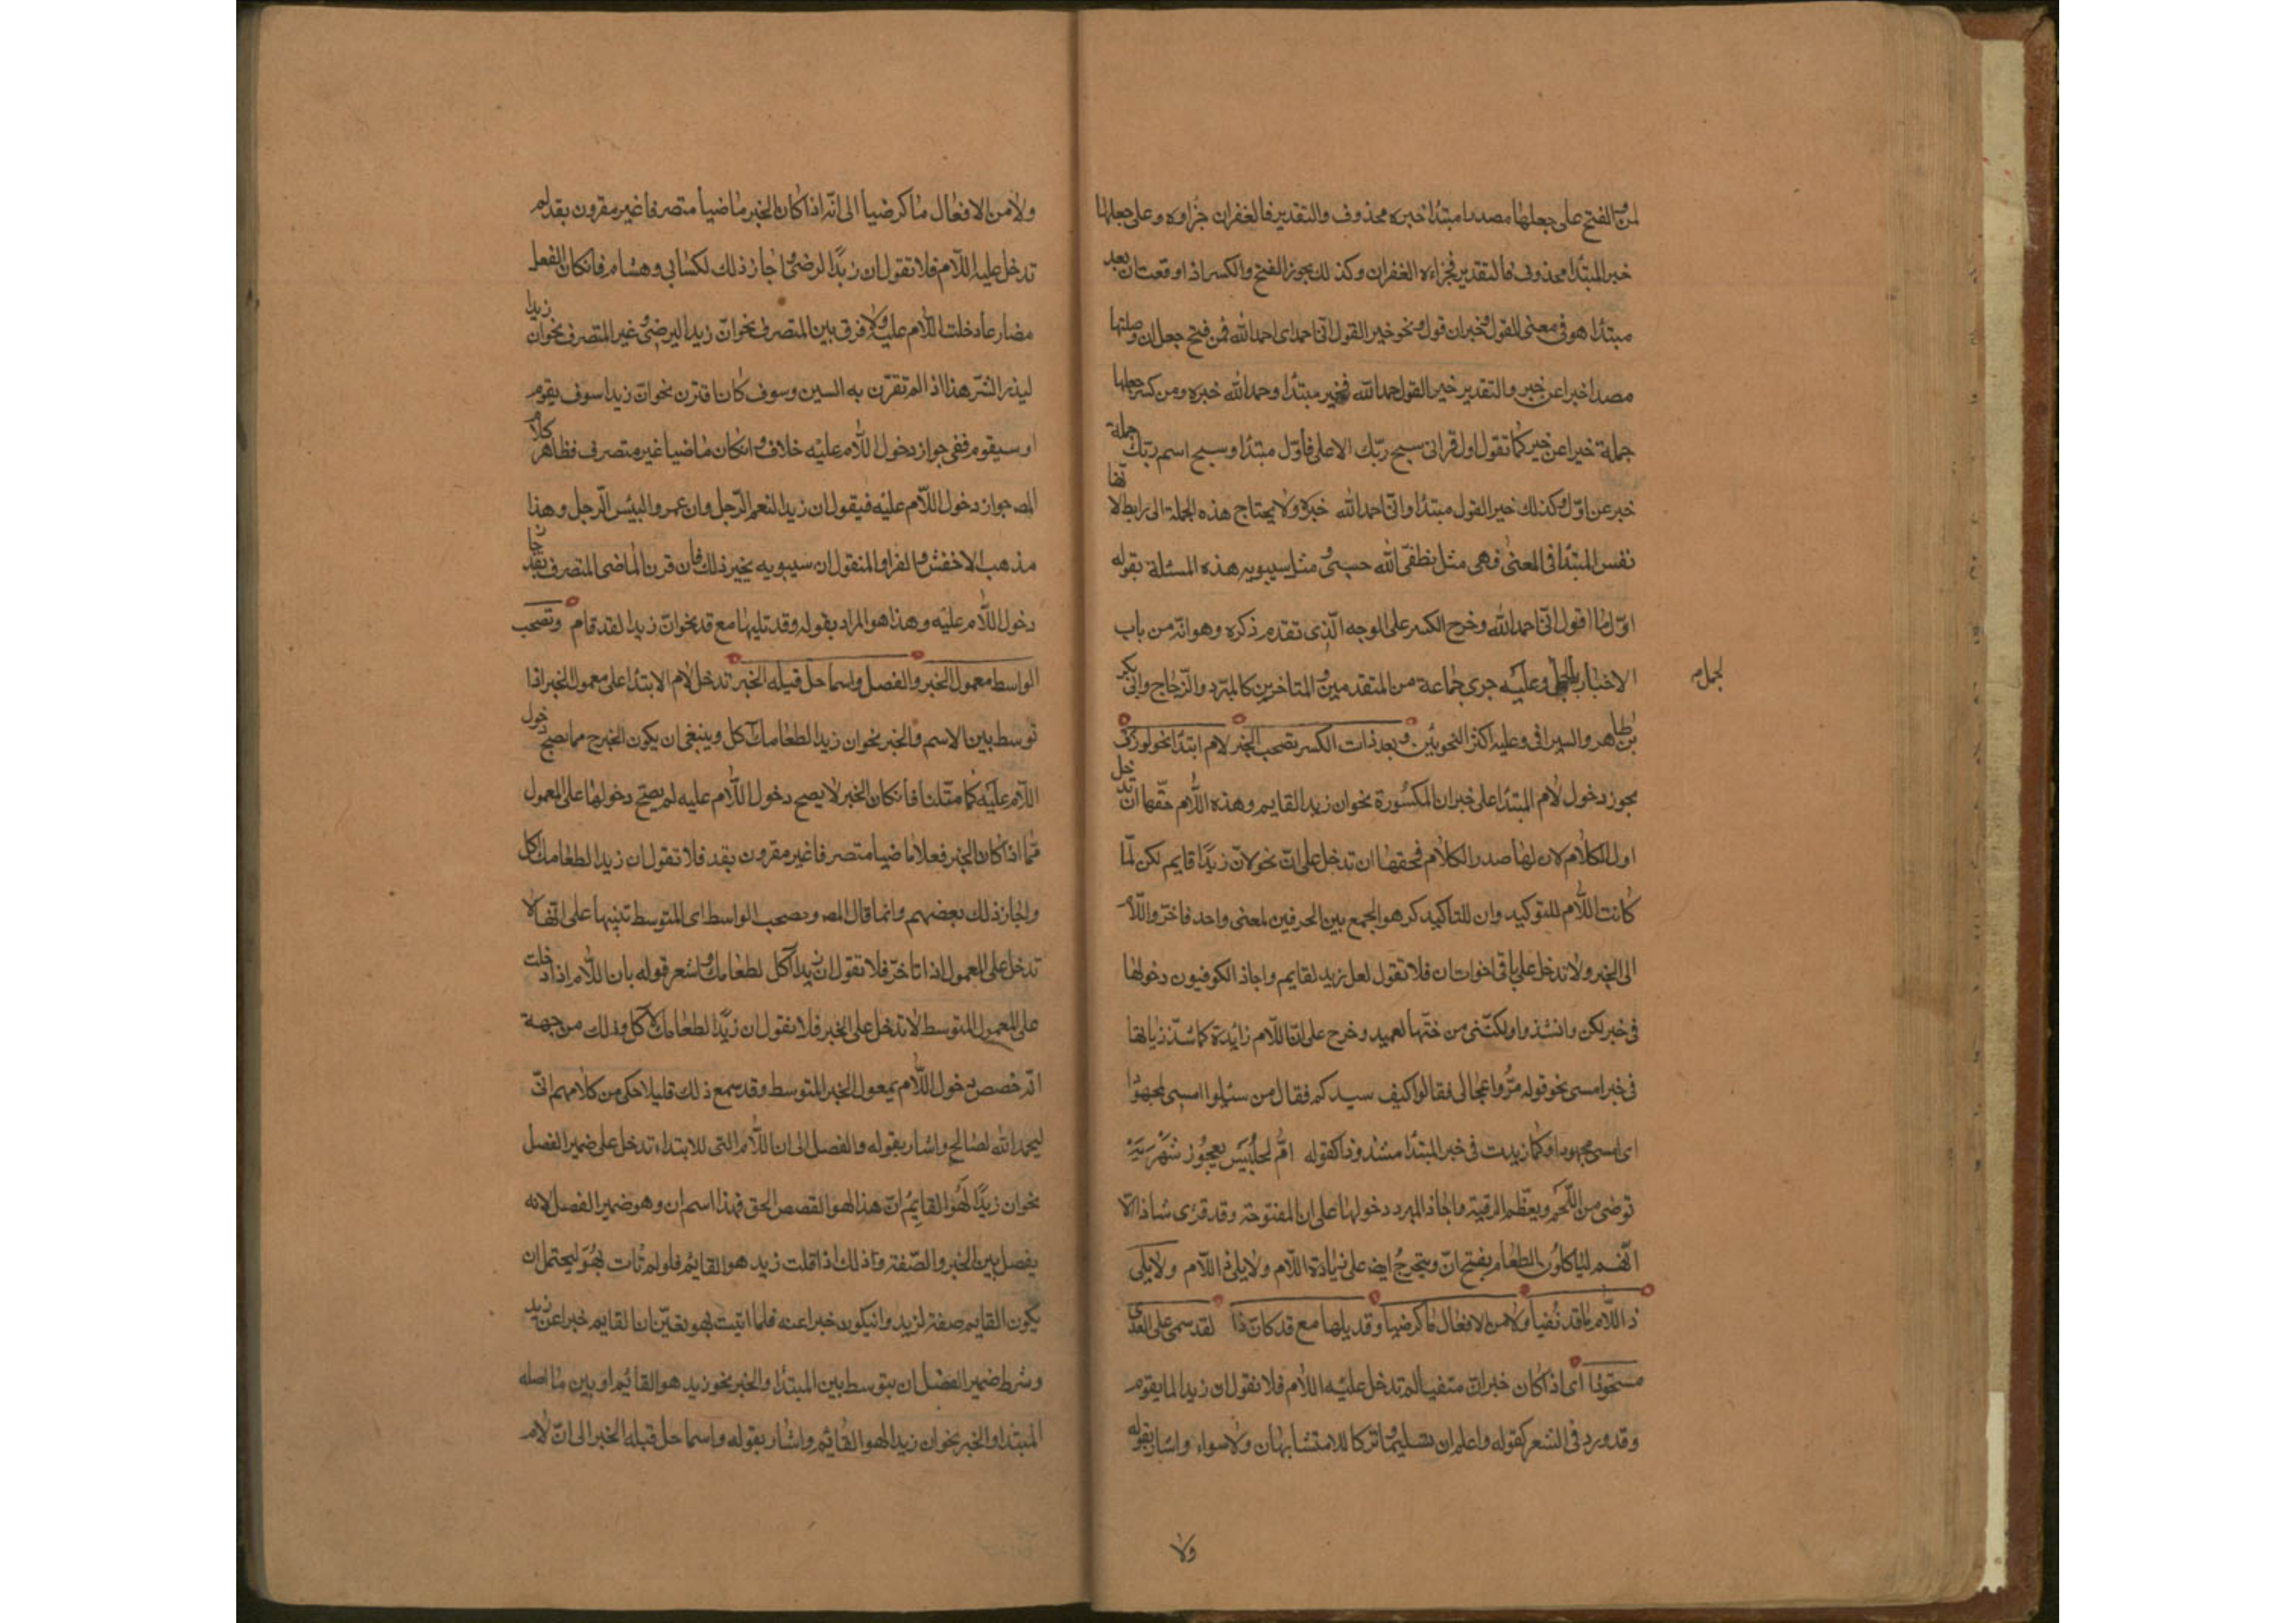 لمن الفتح على جعلها مصدرا مبتدأ خبره محذوف والتقدير فالغفران جزاوه وعلى جعلها
خبر المبتدأ محذوف فالتقدير فجزاءه الغفران وكذلك يجوز الفتح والكسر اذا وقعت ان بعد
مبتدأ هو فى معنى القول وخبر ان قول ونحو خير القول انى احمد اى احمد الله فمن فتح جعل ان وصلتها
مصدرا خبرا عن خير والتقدير خير القول حمد الله فخير مبتدأ وحمد الله خبره ومن كسر جعلها
جملة خبرا عن خير كما تقول اول قرائى سبح ربك الاعلى فأول مبتدأ وسبح اسم ربك جملة
خبر عن اول وكذلك خير القول مبتدأ وانى احمد الله خبره ولا يحتاج هذه الجملة الى رابط لا نها
نفس المبتدأ فى المعنى فهى مثل نطقى الله حسبى ومثل سيبويه هذه المسئلة بقوله
اول ما اقول انى احمد الله وخرح الكسر على الوجه الذى تقدم ذكره وهو انه من باب
الاخبار بالجمل وعليه جرى جماعة من المتقدمين والمتاخرين كالمبرد والزجاج وابى بكر
لجمل م
بن طاهر والسيرافى وعليه اكثر النحويين وبعد ذات الكسر تصحب الخبر لام ابتدأ نحو لوزر
يجوز دخول لام المبتدأ على خبر ان المكسورة نحو ان زيدا لقايم وهذه اللام حقها ان تدخل
اول الكلام لان لها صدر الكلام فحقها ان تدخل على ان نحو لان زيدا قايم لكن لما
كانت اللام للتوكيد وان للتاكيد كرهوا الجمع بين الحرفين لمعنى واحد فاخروا اللام
الى الخبر ولا تدخل على باقى اخوات ان فلا تقول لعل زيد لقايم واجاذ الكوفيون دخولها
فى خبر لكن وانشدوا ولكننى من حبها لعميد وخرح على ان اللام زايدة كما شذ زيادتها
فى خبر امسى نحو قوله مروا عجالى فقالوا كيف سيدكم فقال من سئلوا امسى لمجهودا
اى امسى مجهودا وكما زيدت فى خبر المبتدأ مشذوذا كقوله ام لحليس لعجوز شهربة
توضى من اللحم وبعظم الرقبة واجاذ المبرد دخولها على ان المفتوحة وقد قرى شاذا الا
انهم لياكلون الطعام بفتح ان ويتخرج ايض على زيادة اللام ولا يلى ذ اللام ولا يلى
ذ اللام ما قد نفيا ولا من الافعال ما كرضيا وقد يليها مع قد كان ذا لقد سمى على العدى
مستحوذا اى اذا كان خبر ان منفيا لم تدخل عليه اللام فلا تقول ان زيدا لما يقوم
وقد ورد فى الشعر كقوله واعلم ان تسليما وتركا للامتشابهان ولا سواء واشار بقوله
ولا
ولا من الافعال ما كرضيا الى انه اذا كان الخبر ماضيا متصرفا غير مقرون بقد لم
تدخل عليه اللام فلا تقول ان زيدا لرضى واجاز ذلك لكسائى وهشام فان كان الفعل
مضارعا دخلت اللام عليه ولا فرق بين المتصرف نحو ان زيدا ليرضى وغير المتصرف نحو ان زيدا
ليذر الشر هذا اذا لم تقترن به السين وسوف كان اقترن نحو ان زيدا سوف يقوم
او سيقوم ففى جواز دخول اللام عليه خلاف وان كان ماضيا غير متصرف فظاهر كلام
المص جواز دخول اللام عليه فيقول ان زيدا لنعم الرجل وان عمروا لبئس الرجل وهذا
مذهب الاخفش والفرا والمنقول ان سيبويه يجيز ذلك فان قرن الماضى المتصرف بقد جاز
دخول اللام عليه وهذا هو المراد بقوله وقد تليها مع قد نحو ان زيدا لقد قام وتصحب
الواسط معمول الخبر والفصل واسما حل قبله الخبر تدخل لام الابتدا على معمول الخبر اذا
توسط بين الاسم والخبر نحو ان زيدا لطعامك آكل وينبغى ان يكون الخبر ح مما يصح دخول
اللام عليه كما مثلنا فان كان الخبر لا يصح دخول اللام عليه لم يصح دخولها على المعمول
كما اذا كان الخبر فعلا ماضيا متصرفا غير مقرون بقد فلا تقول ان زيدا لطعامك اكل
واجاز ذلك بعضهم وانما قال المص وتصحب الواسط اى المتوسط تنبيها على انها لا
تدخل على المعمول اذا تاخر فلا تقول ان زيدا آكل لطعامك واشعر قوله بان اللام اذا دخلت
على المعمول المتوسط لا تدخل على الخبر فلا تقول ان زيدا لطعامك لآكل وذلك من جهة
انه خصص دخول اللام بمعمول الخبر المتوسط وقد سمع ذلك قليلا حكى من كلامهم انى
ليحمد الله لصالح واشار بقوله والفصل الى ان اللام التى للابتداء تدخل على ضمير الفصل
نحو ان زيدا لهو القايم ان هذا لهو القصص الحق فهذا اسم ان وهو ضمير الفصل لانه
يفصل بين الخبر والصفة وذلك اذا قلت زيد هو القائم فلو لم تات بهو ليحتمل ان
يكون القايم صفة لزيد وان يكون خبرا عنه فلما اتيت بهو تعين ان القايم خبرا عن زيد
وشرط ضمير الفصل ان يتوسط بين المبتدأ والخبر نحو زيد هو القائم او بين ما اصله
المبتدأ والخبر نحو ان زيدا لهو القائم واشار بقوله واسما حل قبله الخبر الى ان لام